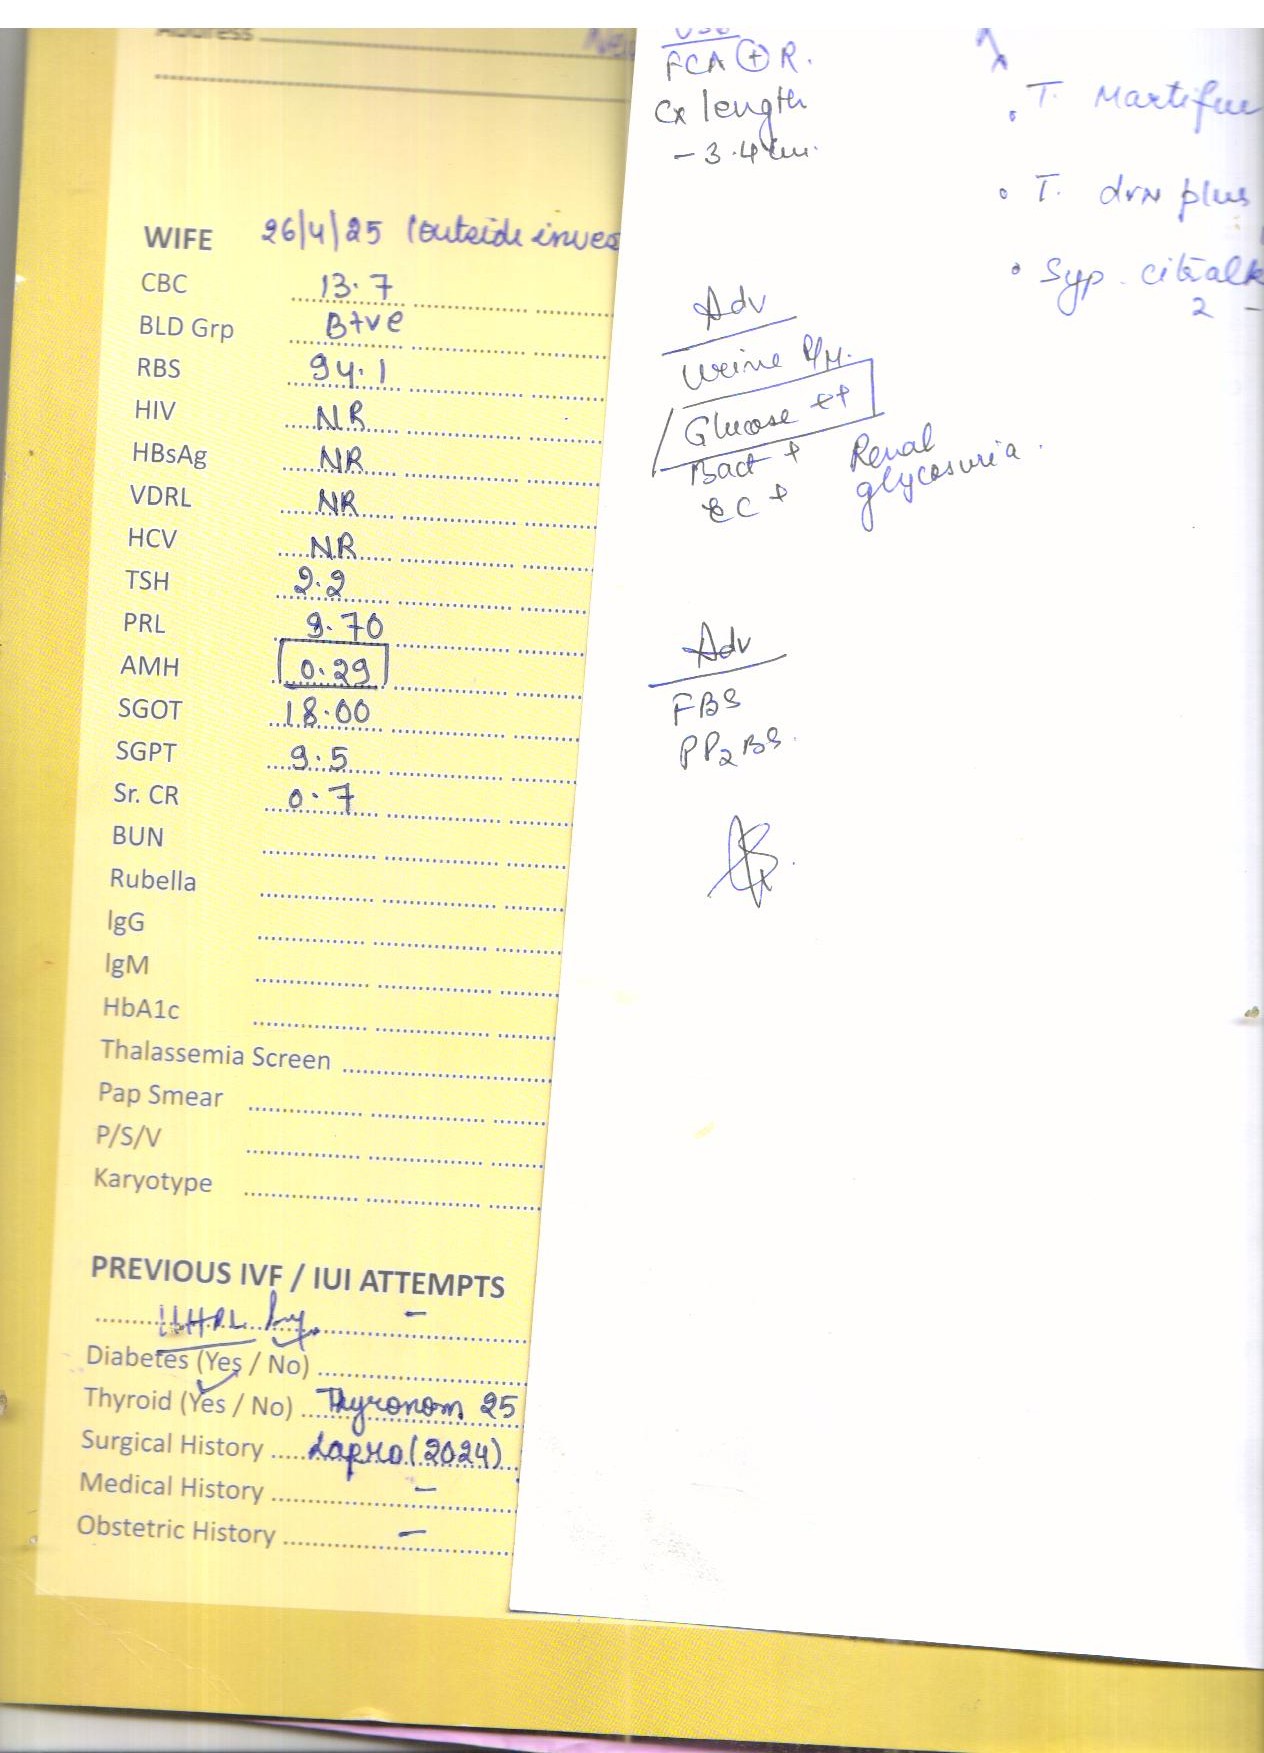 Address
WIFE 26/4/25 (outside inves
CBC 13.7
BLD Grp B+ve
RBS 94.1
HIV NR
HBsAg NR
VDRL NR
HCV NR
TSH 2.2
PRL 9.70
AMH 0.29
SGOT 18.00
SGPT 9.5
Sr. CR 0.7
BUN
Rubella
IgG
IgM
HbA1c
Thalassemia Screen
Pap Smear
P/S/V
Karyotype
PREVIOUS IVF / IUI ATTEMPTS
-
Diabetes (Yes / No)
Thyroid (Yes / No) Thyronom 25
Surgical History Lapro (2024)
Medical History -
Obstetric History -
FCA + R.
Cx length
- 3.4 cm.
Adv
Urine R/M.
Glucose ++
Bact +
EC +
Renal
glycosuria.
Adv
FBS
PP2BS.
. T. Martifur
. T. drn plus
. Syp. citralk
2 -